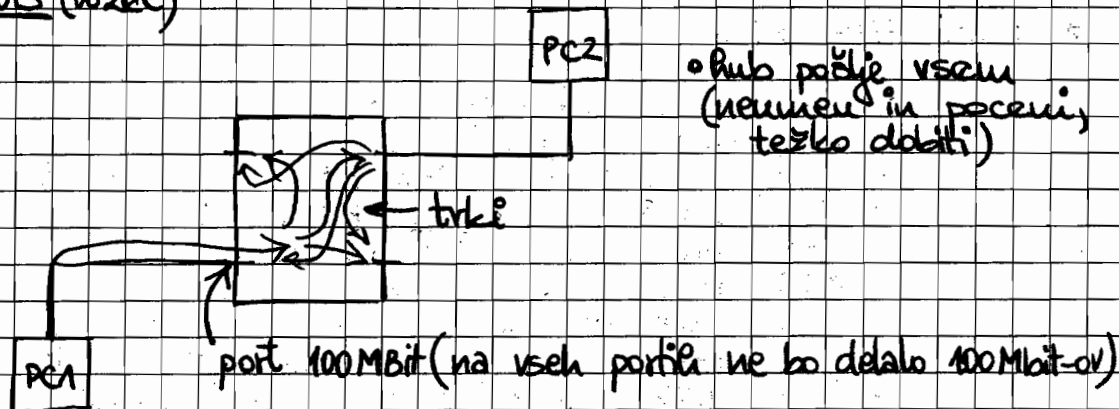 PC2
• hub pošlje vsem
(neumen in poceni,
težko dobiti)
trki
port 100MBit (na vseh portih ne bo delalo 100Mbit-ov)
PC1